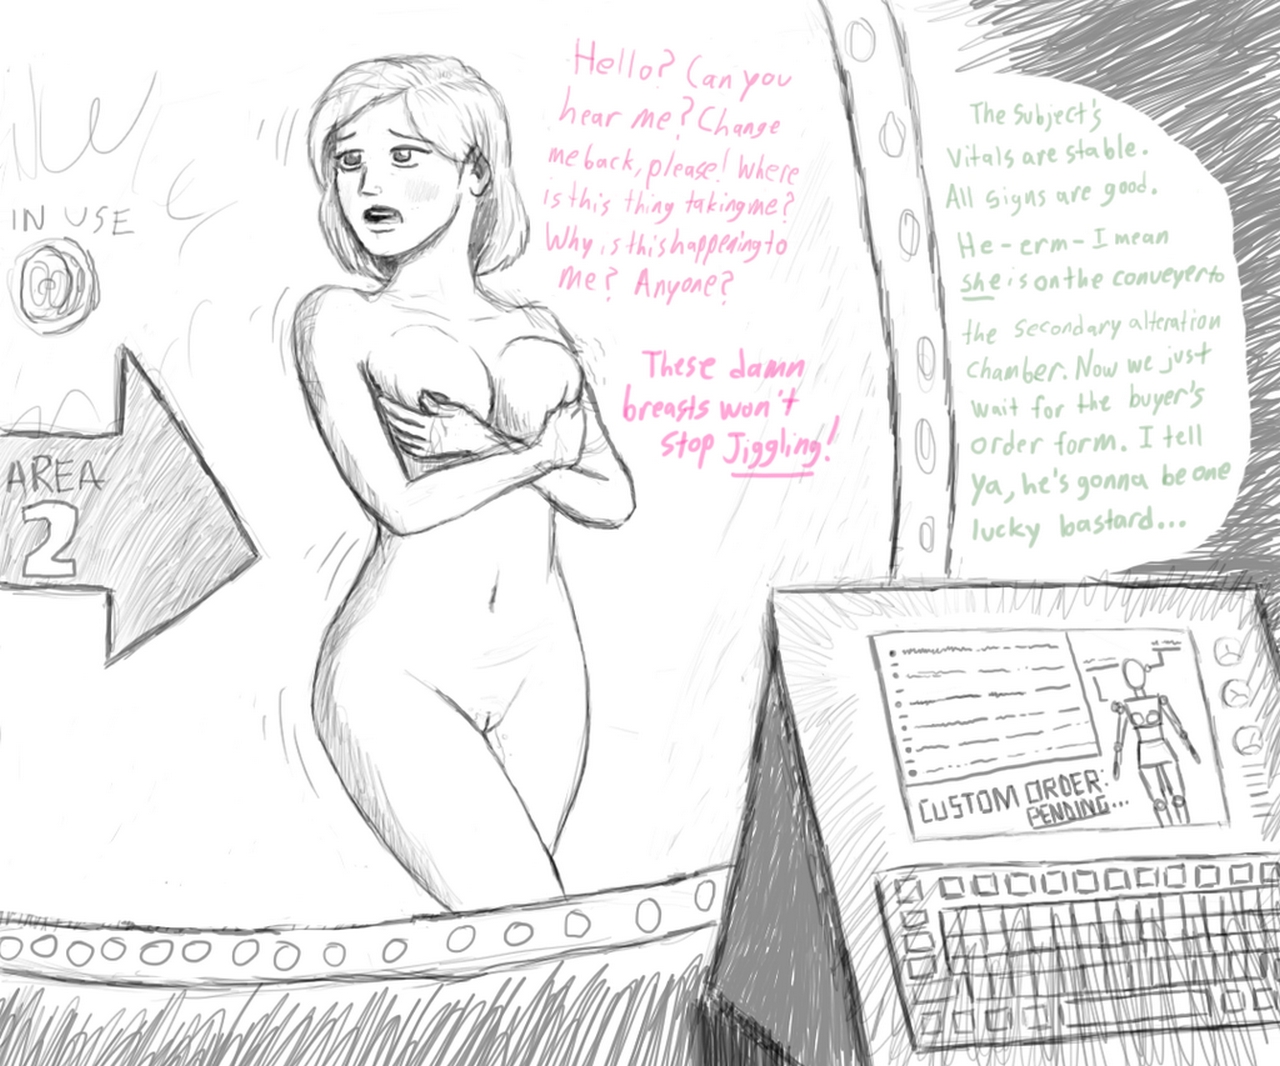 IN USE
AREA
2
Hello? Can you
hear me? Change
me back, please! Where
is this thing taking me?
Why is this happening to
me? Anyone?
These damn
breasts won't
stop Jiggling!
The subject's
vitals are stable.
All signs are good.
He-erm-I mean
she is on the conveyer to
the secondary alteration
chamber. Now we just
wait for the buyer's
order form. I tell
ya, he's gonna be one
lucky bastard...
CUSTOM ORDER:
PENDING...